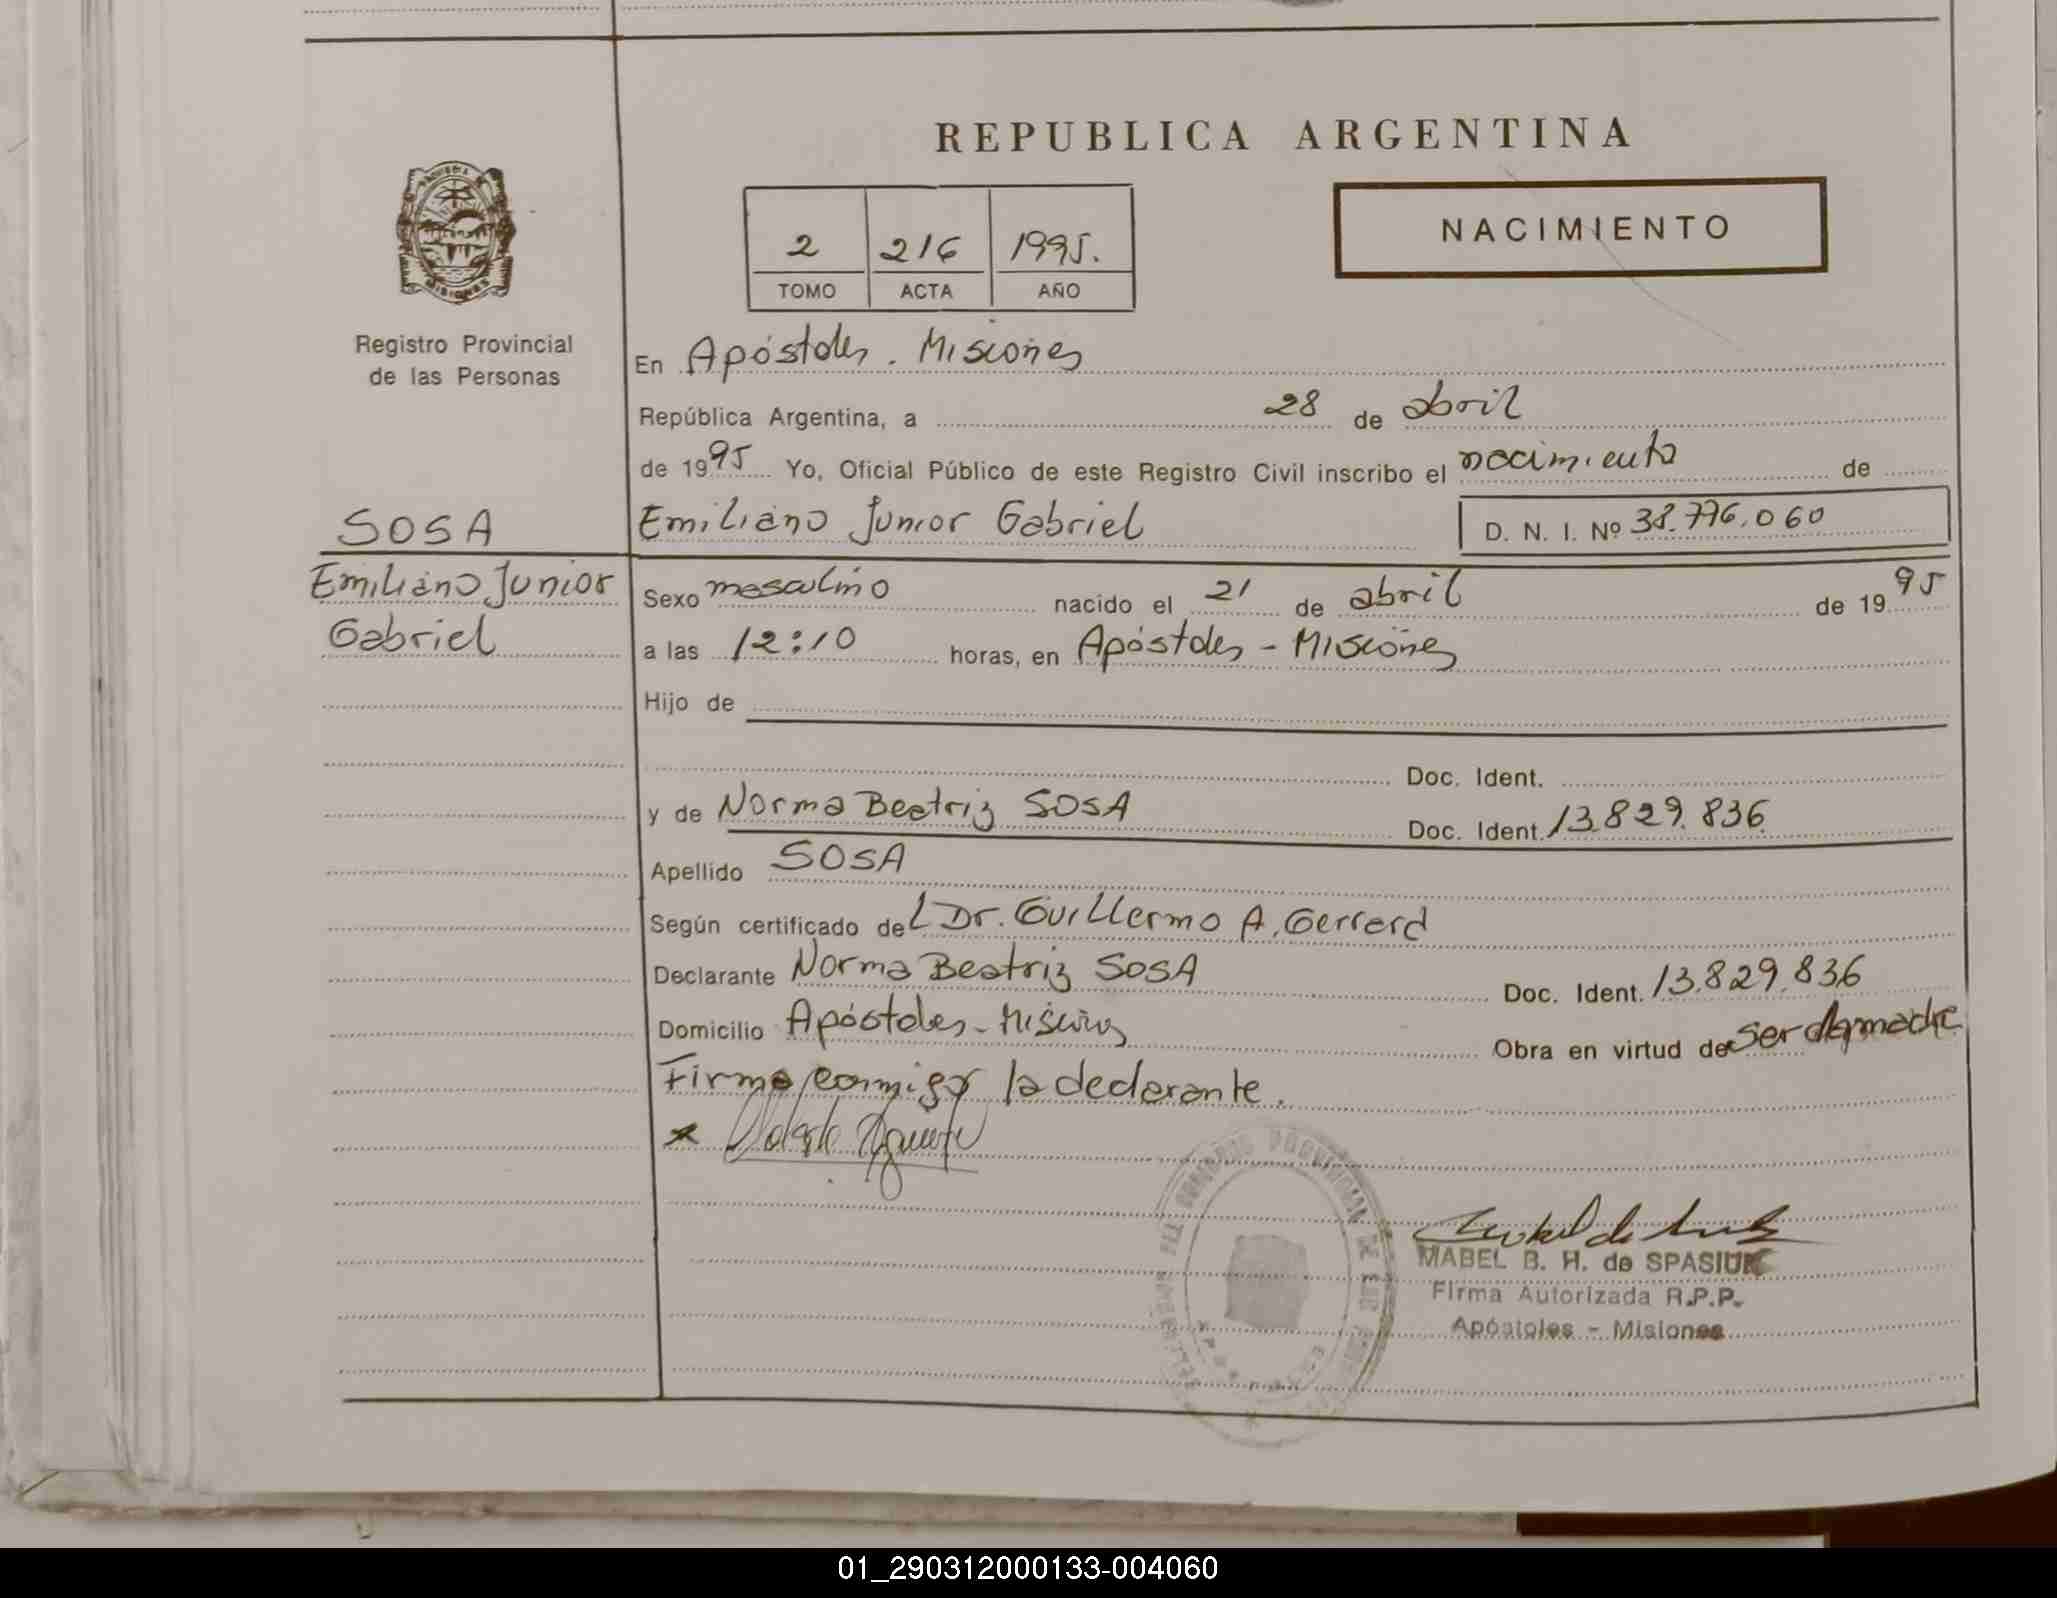 REPUBLICA ARGENTINA
NACIMIENTO
2 216 1995.
TOMO ACTA AÑO
MISIONES
Registro Provincial
de las Personas
En Apóstoles. Misiones
República Argentina, a 28 de abril
de 1995 Yo, Oficial Público de este Registro Civil inscribo el nacimiento de
SOSA
Emiliano Junior Gabriel D. N. I. Nº 38.776.060
Emiliano Junior
Gabriel
Sexo masculino nacido el 21 de abril de 1995
a las 12:10 horas, en Apóstoles - Misiones
Hijo de
Doc. Ident.
y de Norma Beatriz SOSA Doc. Ident. 13.829.836
Apellido SOSA
Según certificado del Dr. Guillermo A. Gerrard
Declarante Norma Beatriz SOSA Doc. Ident. 13.829.836
Domicilio Apóstoles - Misiones Obra en virtud de ser la madre
Firma conmigo la declarante.
MABEL B. H. de SPASIUK
Firma Autorizada R.P.P.
Apóstoles - Misiones
01_290312000133-004060